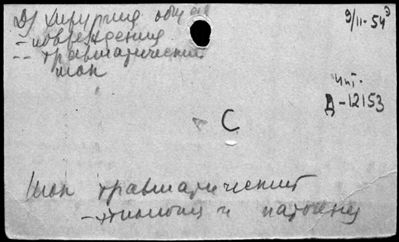 Д) Хирургия общая
- повреждения
-- травматический
шок
9/II-54
Чит.
Д-12153
С
Шок травматический
- этиология и патогенез